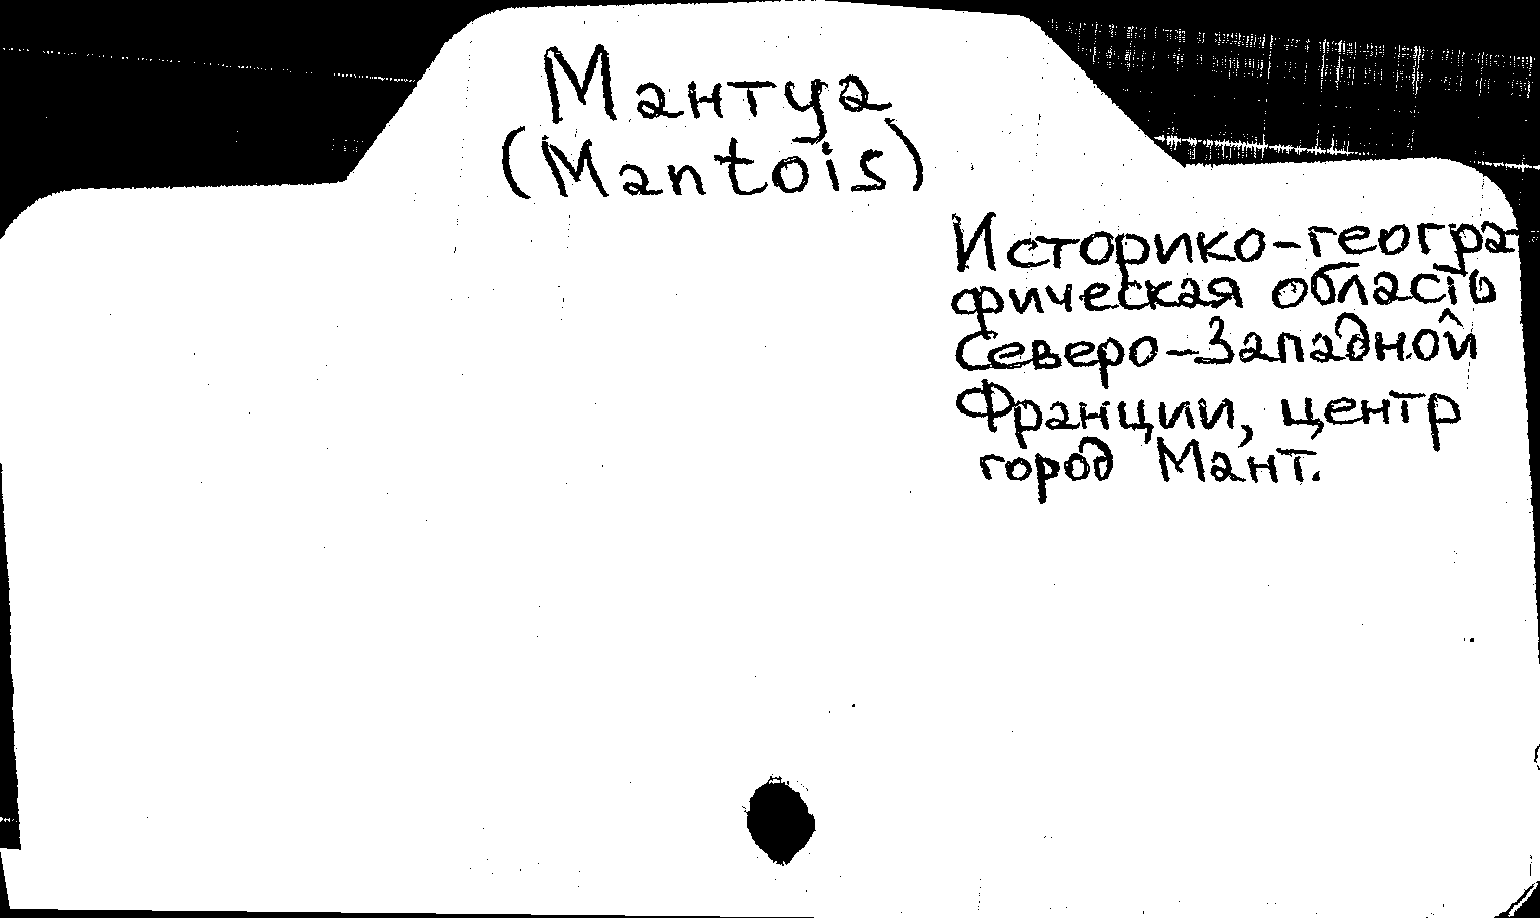 Мантуа
(Mantois)
Историко-геогра-
фическая область
Северо-Западной
Франции, центр
город Мант.